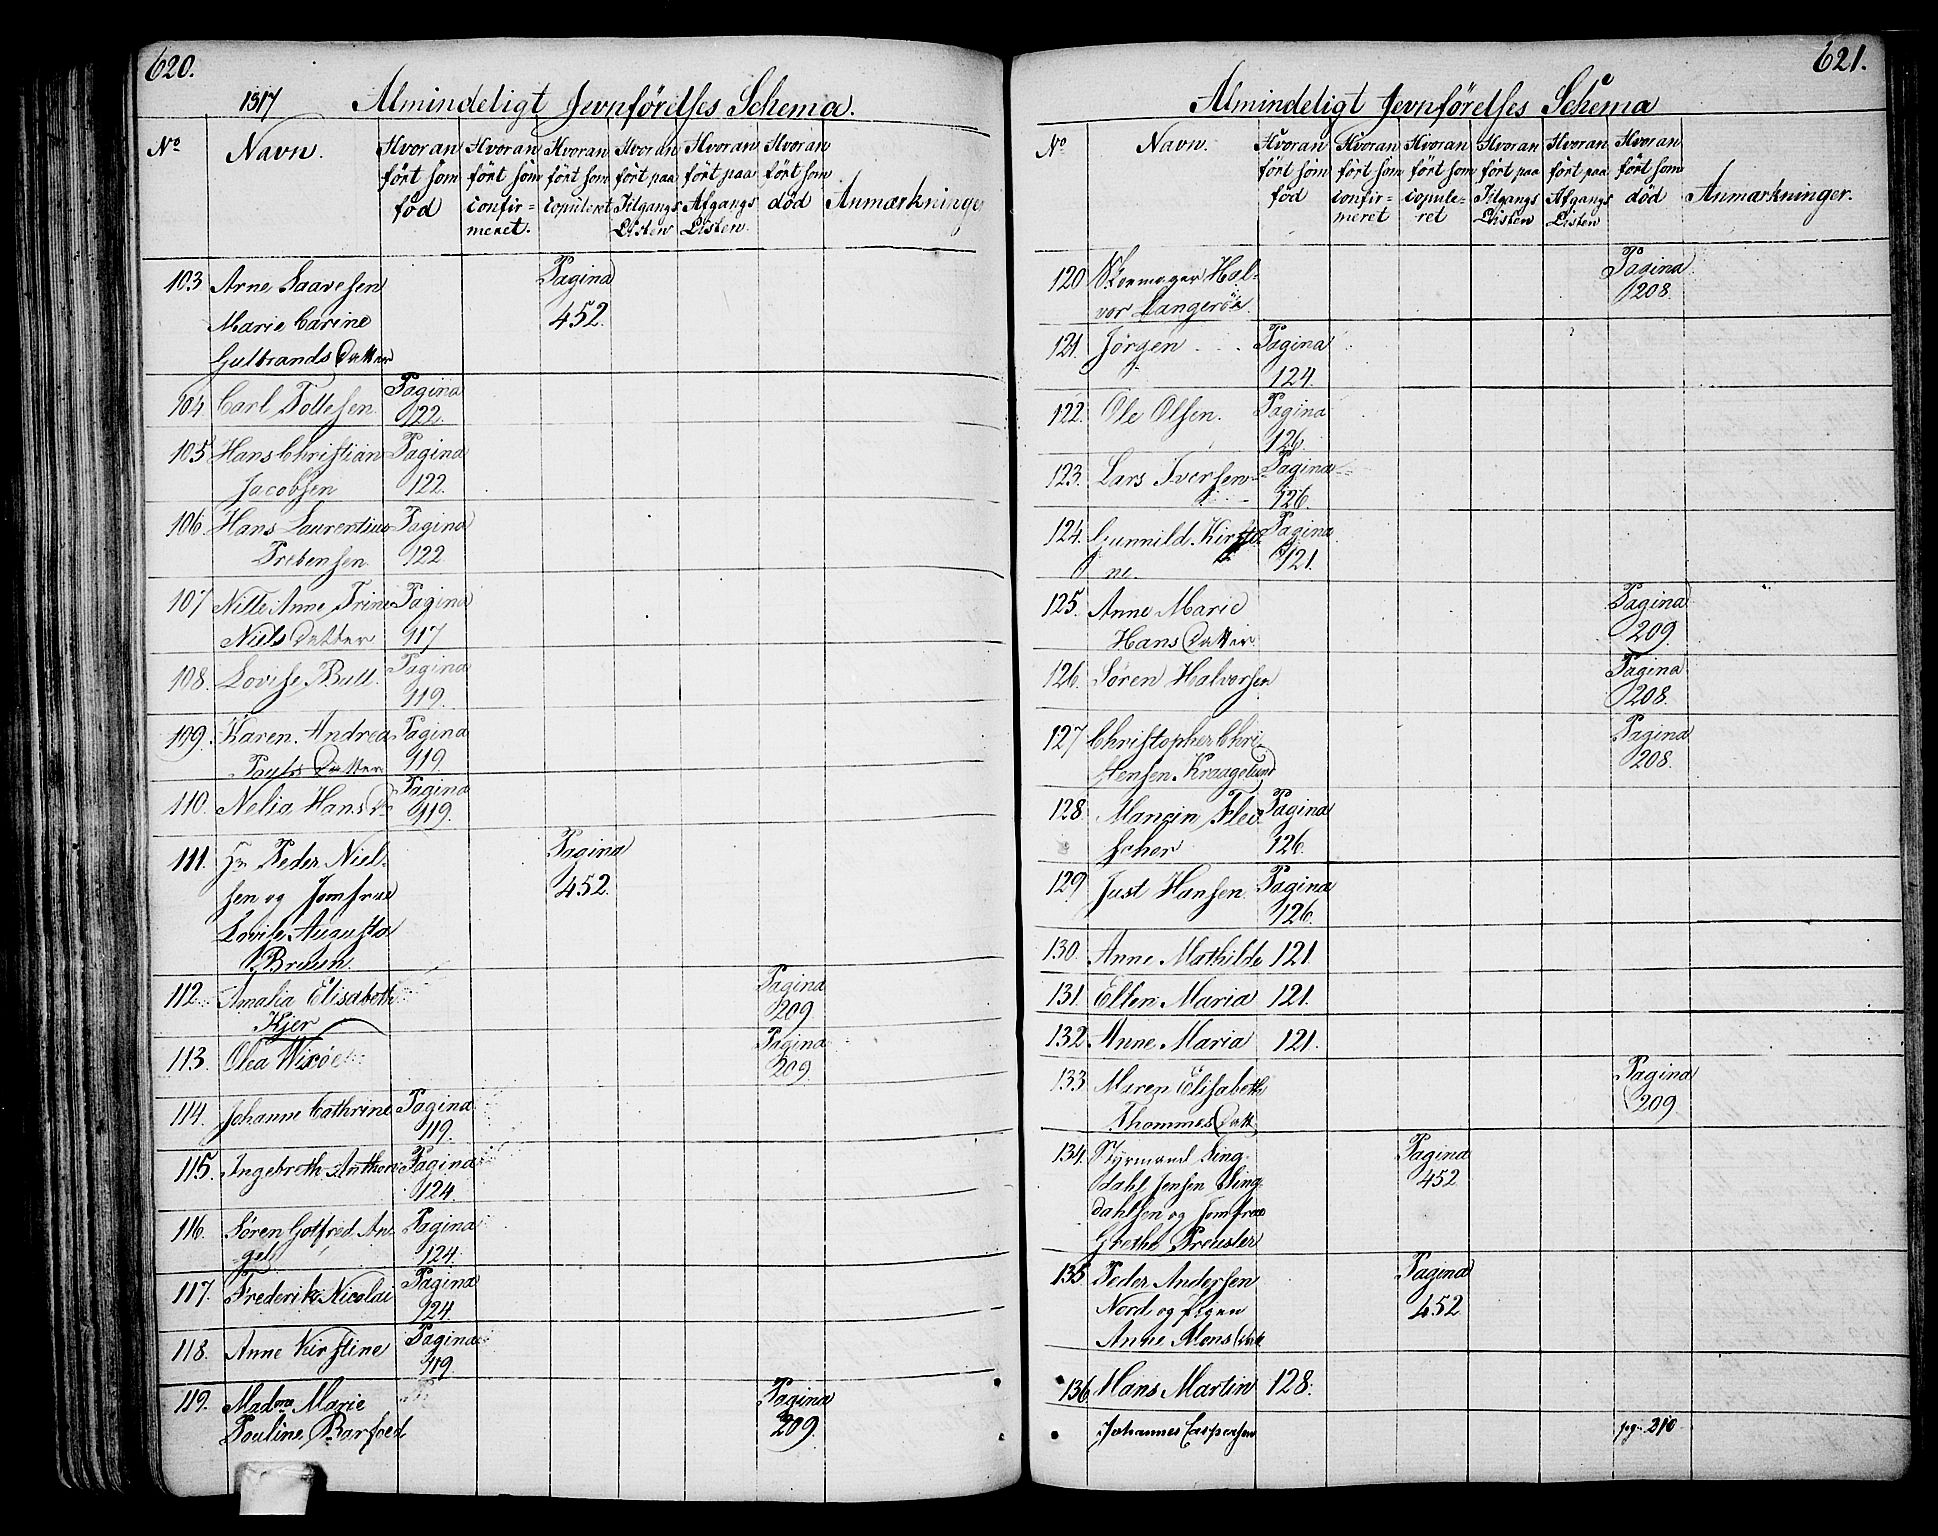 620.
1817 Almindeligt Jevnförelses Schema.
No Navn. Hvoran fört som föd Hvoran fört som confir=meret. Hvoran fört som copuleret Hvoran fört paa Tilgangs Listen Hvoran fört paa Afgangs Listen. Hvoran fört som död Anmærkninger
103 Arne Saavesen Pagina
Marie Carine 452.
Gulbrands Datter
104 Carl Tollesen. Pagina
122.
105 Hans Christian Pagina
Jacobsen 122.
106 Hans Laurentius Pagina
Prebensen 122
107 Nille Anne Trine Pagina
Niels Datter 117
108. Lovise Bull. Pagina
119.
109. Karen Andrea Pagina
Pouls Datter 119.
110. Nelia Hans D. Pagina
119.
111. Hr Peder Niel- Pagina
sen og Jomfrue 452.
Lovise Augusta
Bruun.
112. Amalia Elisabeth Pagina
Kjer 209.
113. Olea Wiröe Pagina
209.
114. Johanne Cathrine Pagina
119.
115. Ingebreth Anthon Pagina
124.
116. Sören Gotfred An- Pagina
gel 124.
117. Frederik Nicolai Pagina
124.
118. Anne Kirstine Pagina
119.
119. Madme Marie Pagina
Pouline Barfoed 209.
621.
Almindeligt Jevnförelses Schema
No Navn. Hvoran fört som föd Hvoran fört som confir=meret Hvoran fört som copule=ret Hvoran fört paa Tilgangs Listen Hvoran fört paa Afgangs Listen Hvoran fört som död Anmærkninger.
120 Skoemager Hal- Pagina
vor Langeröe. 208.
121. Jörgen Pagina
124.
122. Ole Olsen. Pagina
126.
123. Lars Iversen Pagina
126.
124. Gunnild Kirsti- Pagina
ne. 121.
125. Anne Marie Pagina
Hans Datter. 209.
126. Sören Halvorsen Pagina
208.
127 Christopher Chri- Pagina
stensen Kraagelund 208.
128. Mancin Flei- Pagina
scher 126.
129 Just Hansen. Pagina
126.
130. Anne Mathilde 121.
131. Ellen Maria 121.
132 Anne Maria 121.
133. Maren Elisabeth Pagina
Thommes Datt 209
134. Styrmand Ling- Pagina
dahl Jensen Ling- 452
dahlsen og Jomfrue
Grethe Preusler
135 Peder Andersen Pagina
Nord og Pigen 452
Anne Mons Datt
136 Hans Martin 128.
Johannes Caspersen pag. 210